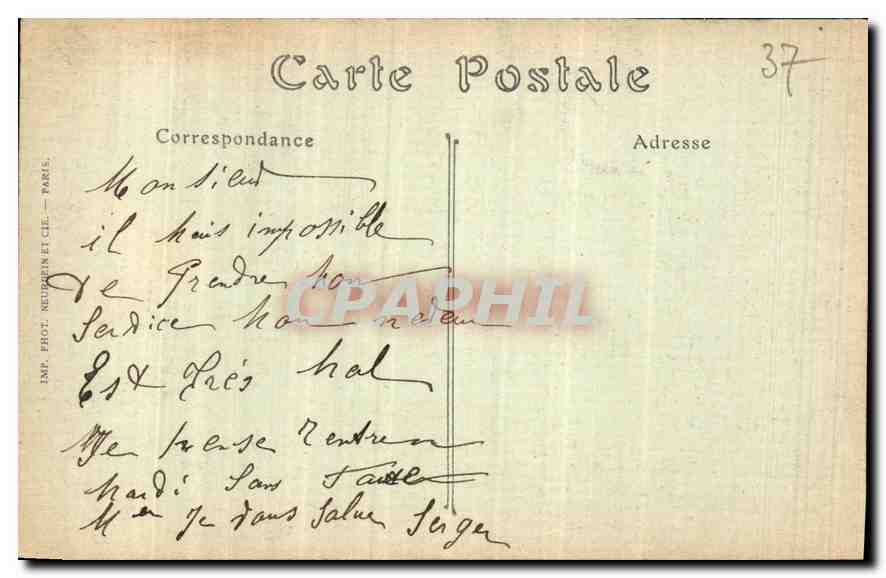 37
Carte Postale
Correspondance
Adresse
IMP. PHOT. NEURDEIN ET CIE. — PARIS.
CPAPHIL
Monsieur
il mais impossible
de Prendre mon
Service mon neveu
Est Très mal
Je pense Rentrer
mardi Sans Faute
Mr Je vous Salue Serger